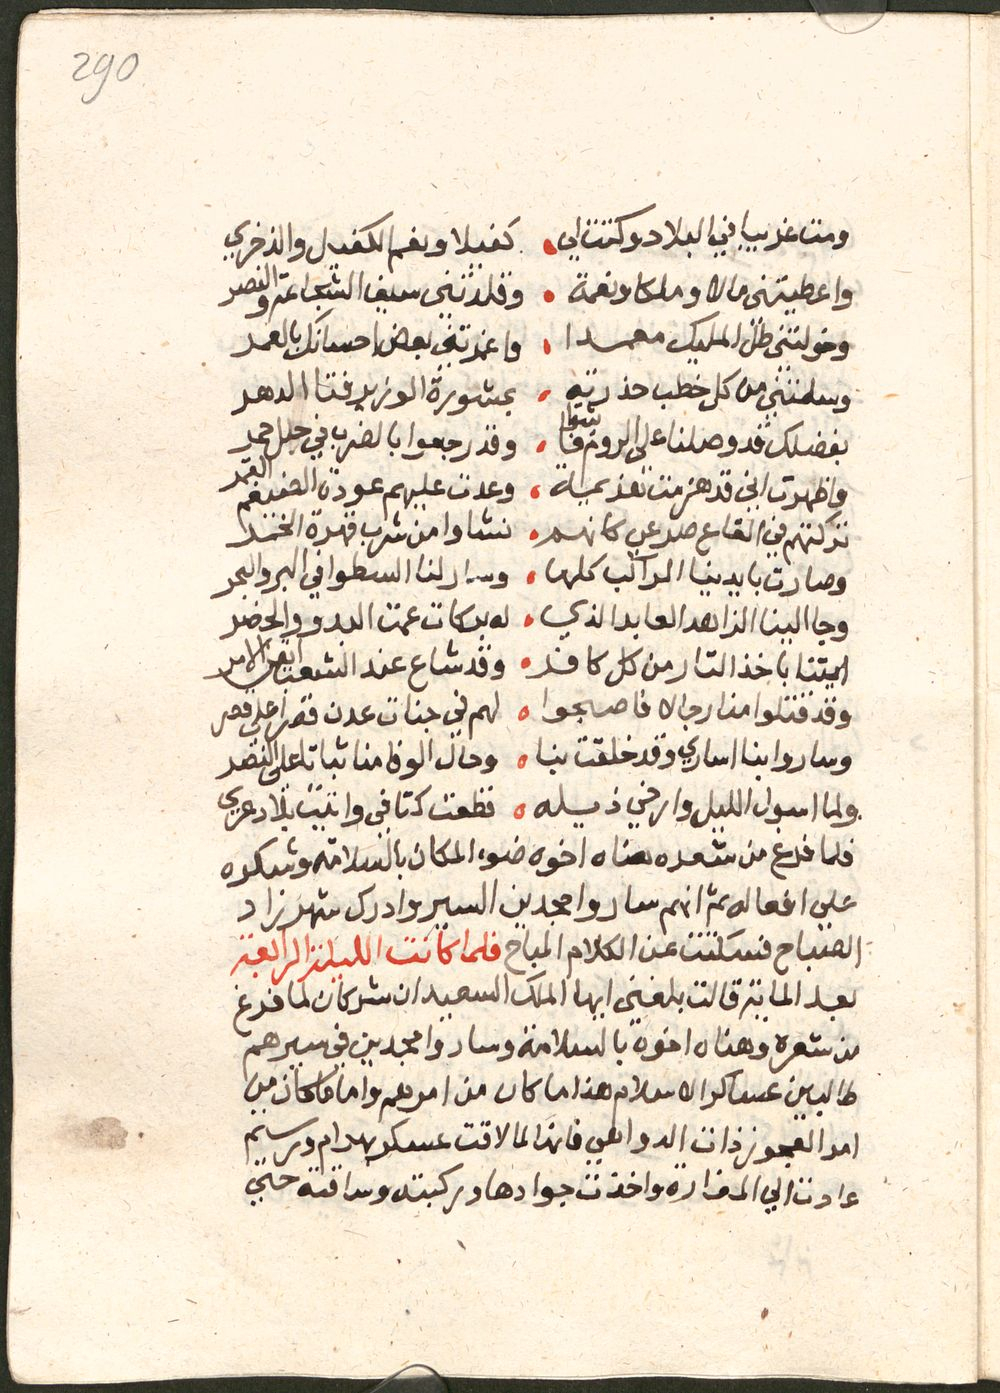 290
ومت غريبا في البلاد وكنت لي . كفيلا ونعم الكفيل والذخري
واعطيتني مالا وملكا ونعمة . وقلدتني سيف الشجاعة والنصر
وخولتني ظل المليك معمدا . واغمدتني بعض احسانك بالغمد
وسلمتني من كل خطب حذرته . بمشورة الوزير فتا الدهر
بفضلك قد وصلنا على الروم فاشوا . وقد رجعوا بالضرب في حلل حمر
واظهرت اني قد هزمت بعزيمة . وعدت عليهم عودة الضيغم الغمر
تركتهم في القاع صرعى كانهم . نشاوا من شرب قهوة الخمر
وصارت بايدينا المراكب كلها . وصار لنا السطوا في البر والبحر
وجا الينا الزاهد العابد الذي . له بركات عمت البدو والحضر
اتيتنا باخذ التار من كل كافر . وقد شاع عند الشعب الامر
وقد قتلوا منا رجالا فاصبحوا . لهم في جنات عدن قصرا على قصر
وساروا بنا اساري وقد خلقت بنا . وحال الوفا منا ثباتا على النصر
ولما اسبول الليل وارخي ذيله . قطعت كتافي واتيت بلاد عزي
فلما فرغ من شعره هناه اخوه ضوء المكان بالسلامة وشكره
على افعاله ثم انهم ساروا مجدين السير وادرك شهرزاد
الصباح فسكتت عن الكلام المباح فلما كانت الليلة الرابعة
بعد الماية قالت بلغني ايها الملك السعيد ان شركان لما فرغ
من شعره وهناه اخوه بالسلامة وساروا مجدين في سيرهم
طالبين عساكر الاسلام هذا ما كان من امرهم واما ما كان من
امر العجوز ذات الدواهي فانها لما لاقت عسكر بهرام ورستم
عادت الي المغارة واخذت جوادها وركبته وساقته حتي